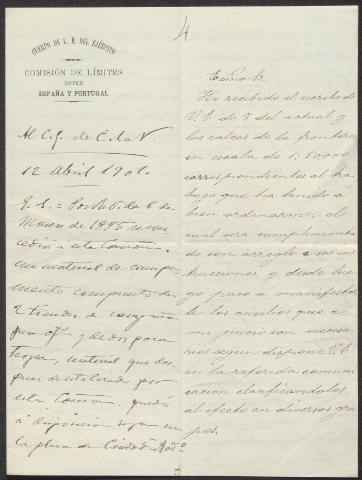 4
CUERPO DE E. M. DEL EJÉRCITO
COMISIÓN DE LÍMITES
ENTRE
ESPAÑA Y PORTUGAL
Al C.G. de C. la V.
12 Abril 1901.
E. S. = Por R.O. de 6 de
Marzo de 1896 se con
cedió a esta Comisión
un material de campa
mento compuesto de
2 tiendas de campaña
para ofl. y de dos para
tropa, material que des
pues de utilizado por
esta Comon. quedó
á disposicion suya en
la plaza de Ciudad Rodo.
Excmo Sr.
He recibido el escrito de
V. E. de 8 del actual y
los calcos de la frontera
en escala de 1: 50.000
correspondientes al tra
bajo que ha tenido á
bien ordenarme, el
cual será cumplimenta
do con arreglo a sus ins
trucciones, y desde lue
go paso á manifestar
le los auxilios que á
mi juicio son necesa
rios segun dispone V.E.
en la referida comuni
cación clasificandolos
al efecto en diversos gru
pos.